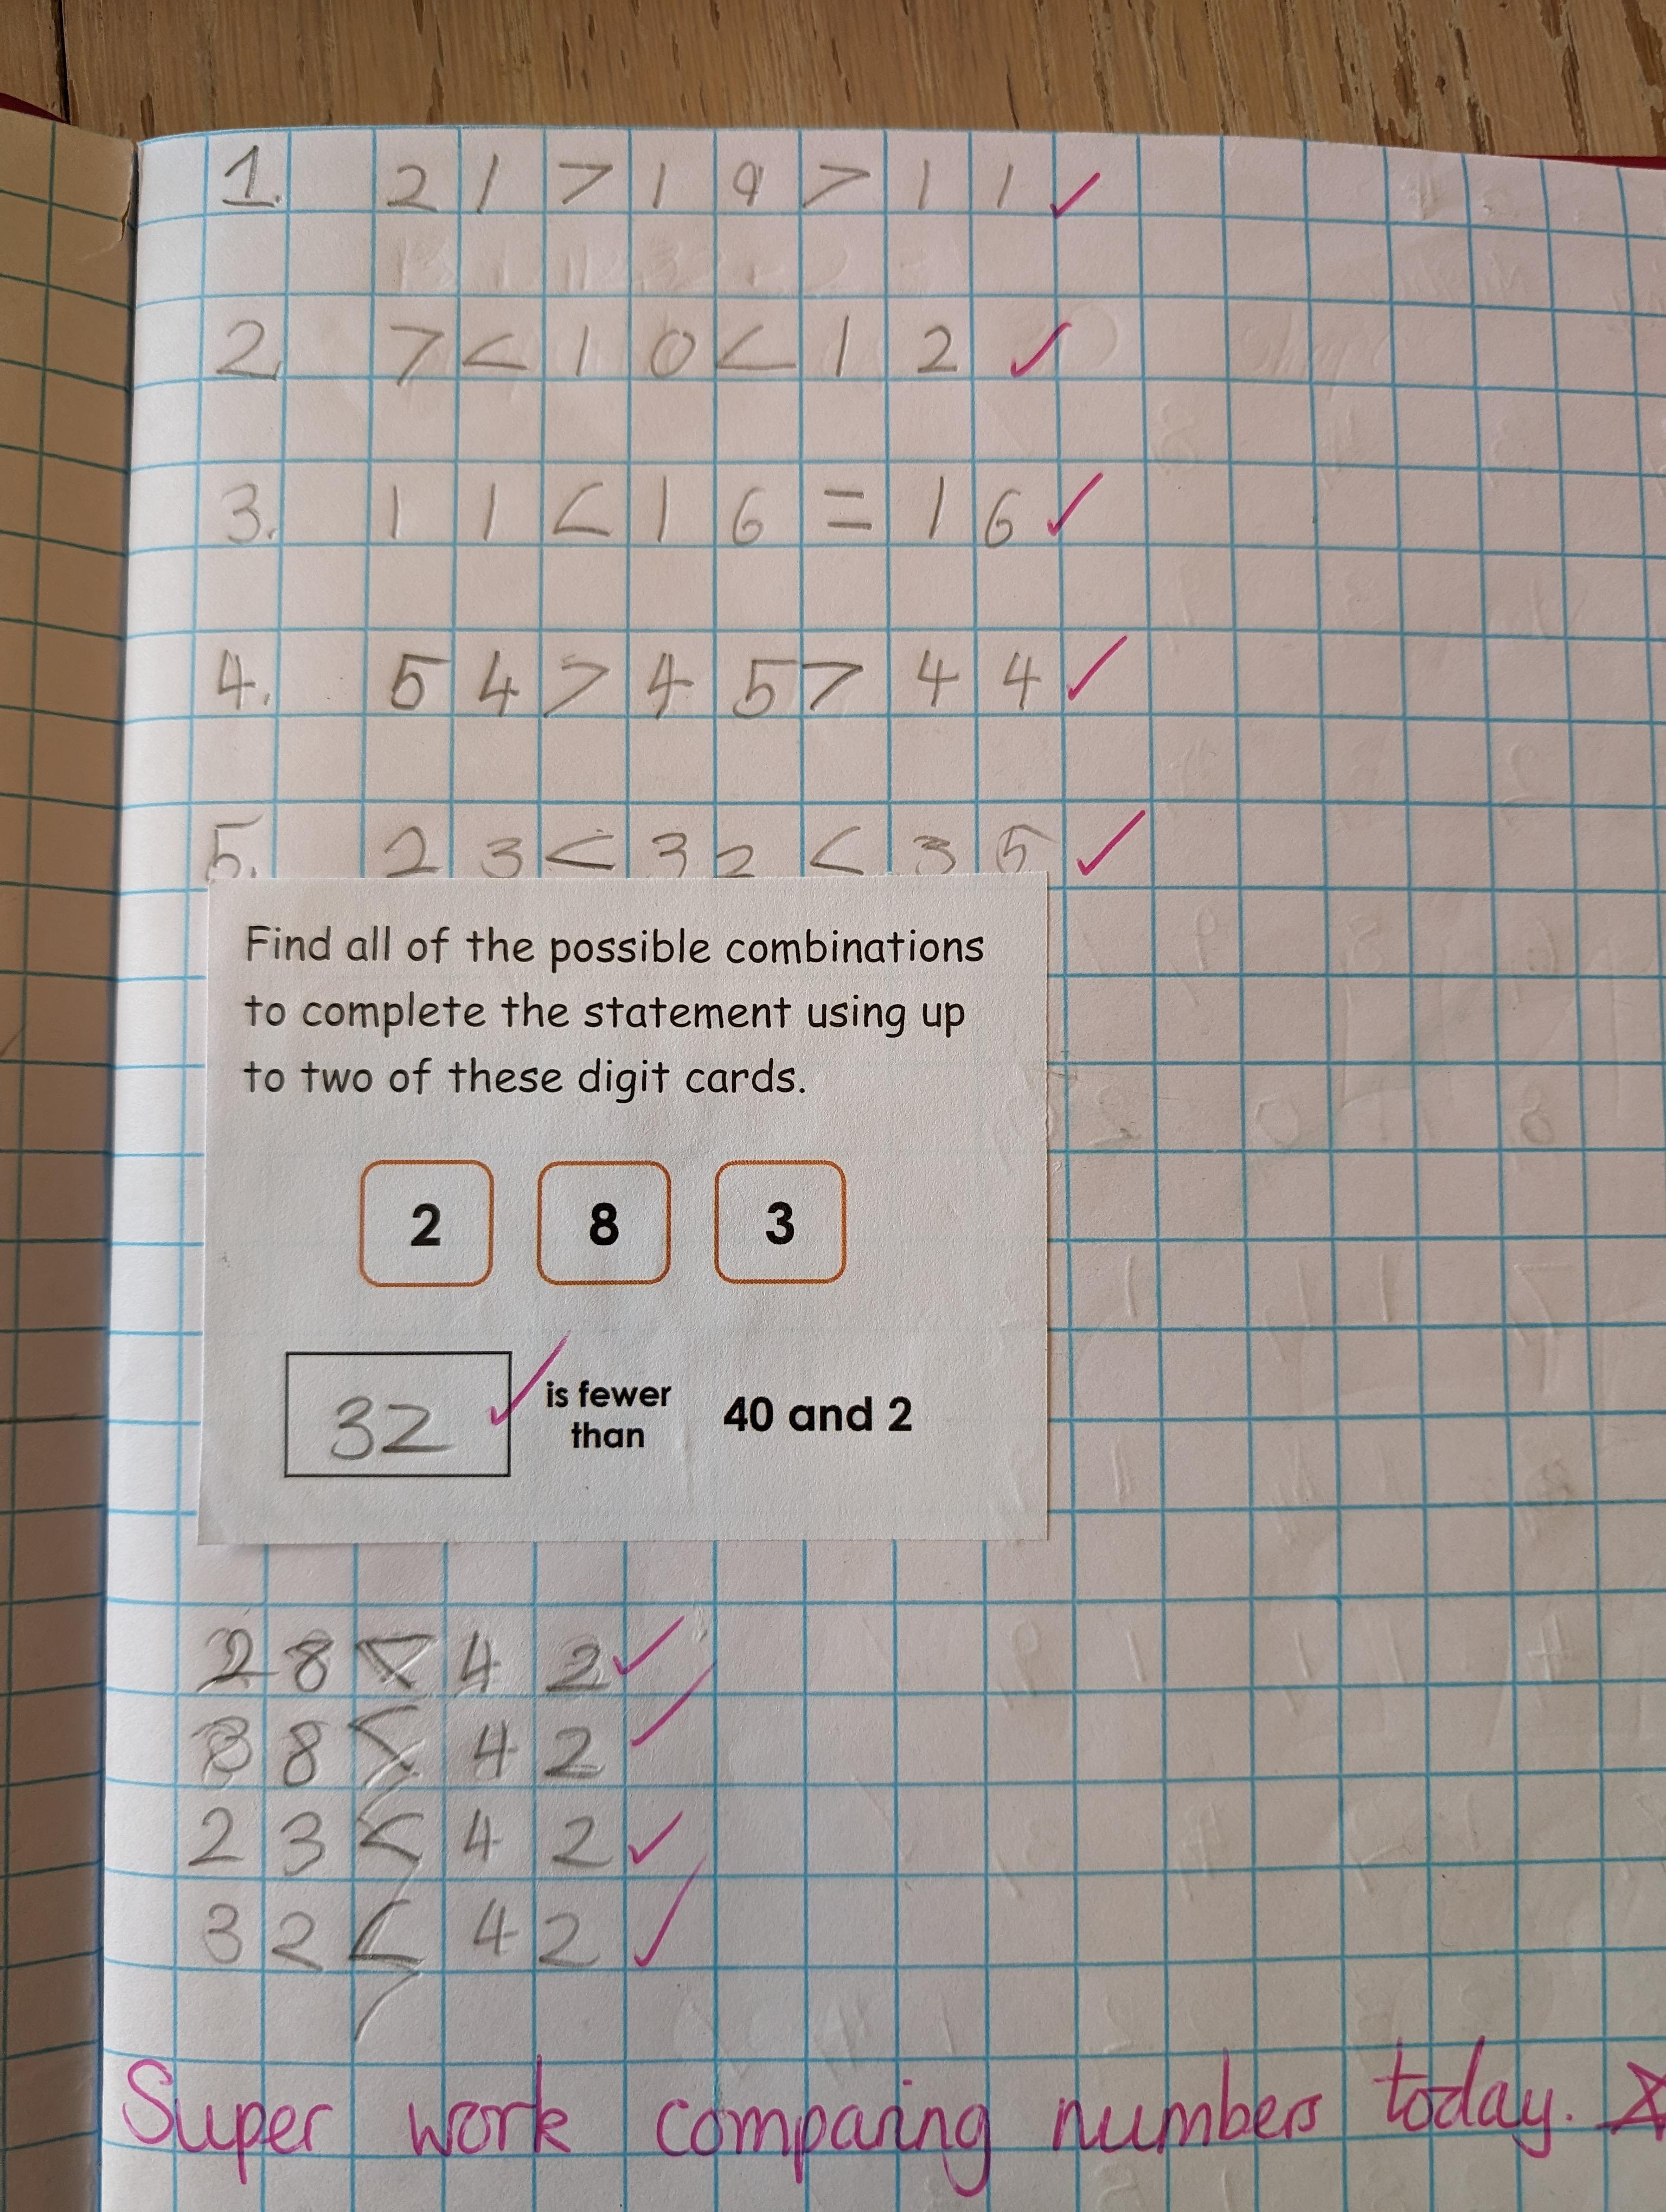 1. 21 > 19 > 11 ✓
2. 7 < 10 < 12 ✓
3. 11 < 16 = 16 ✓
4. 54 > 45 > 44 ✓
5. 23 < 32 < 35 ✓
Find all of the possible combinations
to complete the statement using up
to two of these digit cards.
2 8 3
32 ✓ is fewer than 40 and 2
28 < 42 ✓
38 < 42 ✓
23 < 42 ✓
32 < 42 ✓
Super work comparing numbers today.